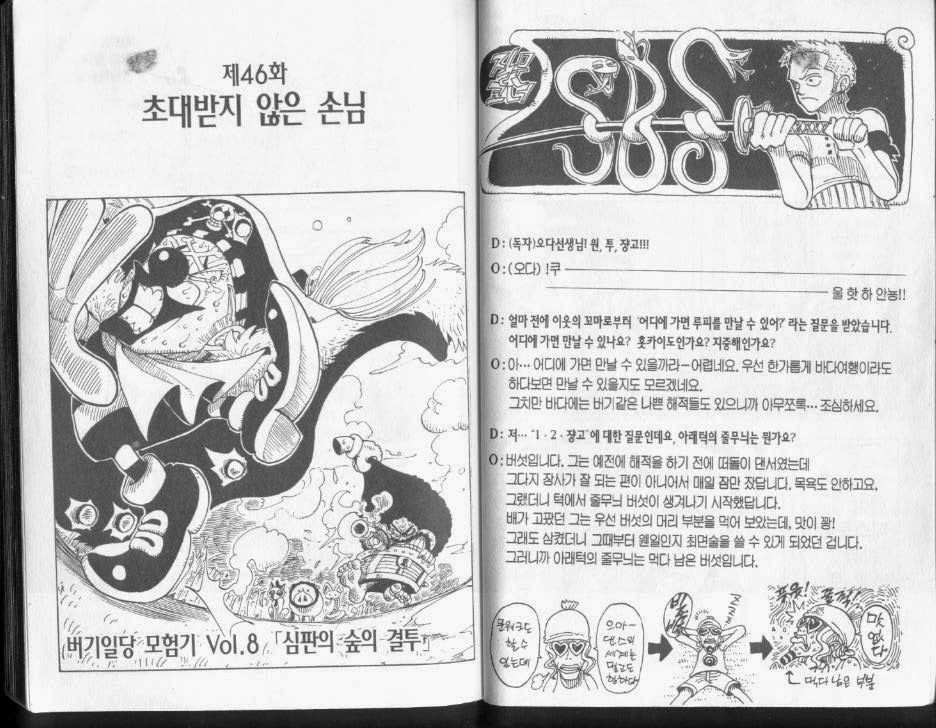 제46화
초대받지 않은 손님
버기일당 모험기 Vol.8 「심판의 숲의 결투」
SBS
D: (독자)오다선생님! 원, 투, 쟝고!!!
O: (오다) !쿠
울 핫 하 안뇽!!
D: 얼마 전에 이웃의 꼬마로부터 "어디에 가면 루피를 만날 수 있어?" 라는 질문을 받았습니다.
어디에 가면 만날 수 있나요? 홋카이도인가요? 지중해인가요?
O: 아… 어디에 가면 만날 수 있을까라-어렵네요. 우선 한가롭게 바다여행이라도
하다보면 만날 수 있을지도 모르겠네요.
그치만 바다에는 버기같은 나쁜 해적들도 있으니까 아무쪼록… 조심하세요.
D: 저… "1·2·쟝고"에 대한 질문인데요, 아래턱의 줄무늬는 뭔가요?
O: 버섯입니다. 그는 예전에 해적을 하기 전에 떠돌이 댄서였는데
그다지 장사가 잘 되는 편이 아니어서 매일 잠만 잤답니다. 목욕도 안하고요.
그랬더니 턱에서 줄무늬 버섯이 생겨나기 시작했답니다.
배가 고팠던 그는 우선 버섯의 머리 부분을 먹어 보았는데, 맛이 꽝!
그래도 삼켰더니 그때부터 웬일인지 최면술을 쓸 수 있게 되었던 겁니다.
그러니까 아래턱의 줄무늬는 먹다 남은 버섯입니다.
문워크도
할 수
있는데
으아~
댄스의
세계는
멀고도
험하다
맛
없다
먹다 남은 부분